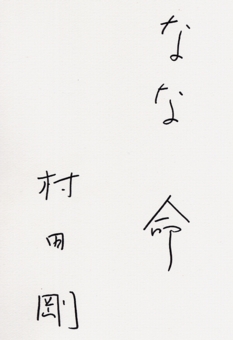 なな 命
村田 剛